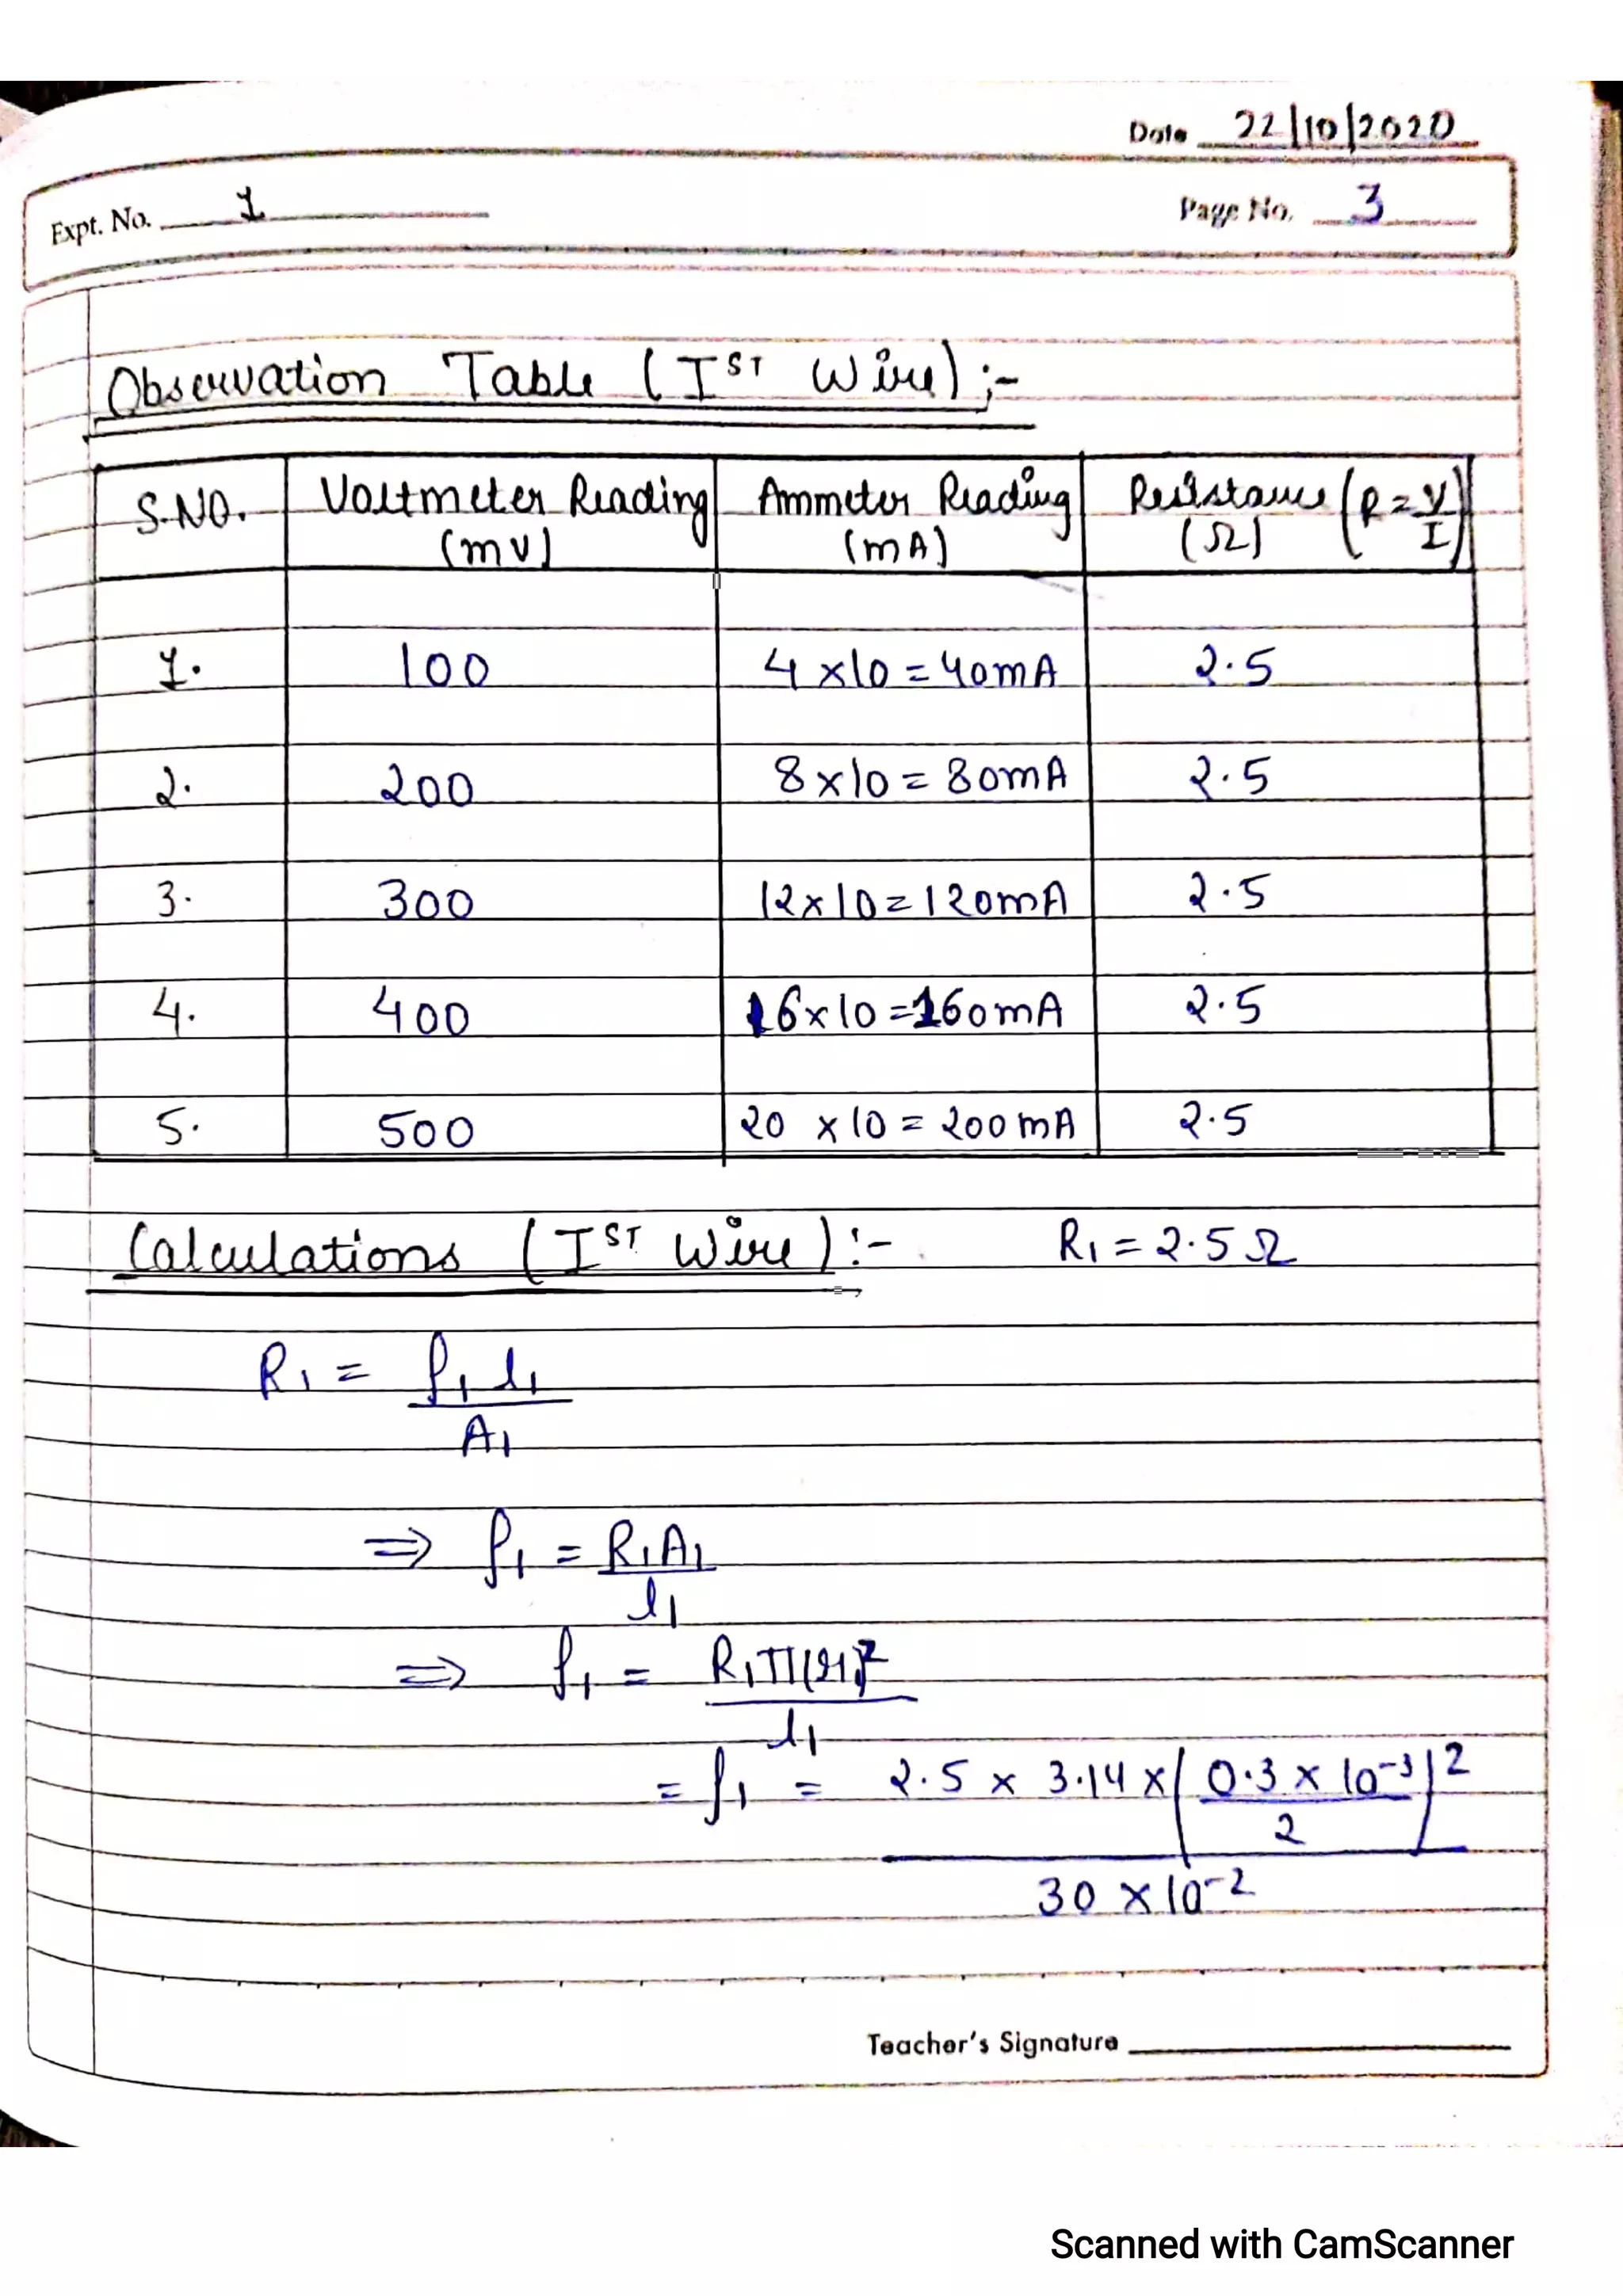 Date 22/10/2020
Expt. No. 1
Page No. 3
Observation Table (IST Wire) :-
S.NO. Voltmeter Reading (mV) Ammeter Reading (mA) Resistance (R = V/I) (Ω)
1. 100 4 x10 = 40mA 2.5
2. 200 8 x10 = 80mA 2.5
3. 300 12x10=120mA 2.5
4. 400 16x10=160mA 2.5
5. 500 20 x10 = 200mA 2.5
Calculations (IST Wire) :- R1 = 2.5Ω
R1 = ρ1 l1 / A1
⇒ ρ1 = R1A1 / l1
⇒ ρ1 = R1π(r1)² / l1
= ρ1 = 2.5 x 3.14 x (0.3 x 10-3 / 2)2 / 30 x10-2
Teacher's Signature
Scanned with CamScanner